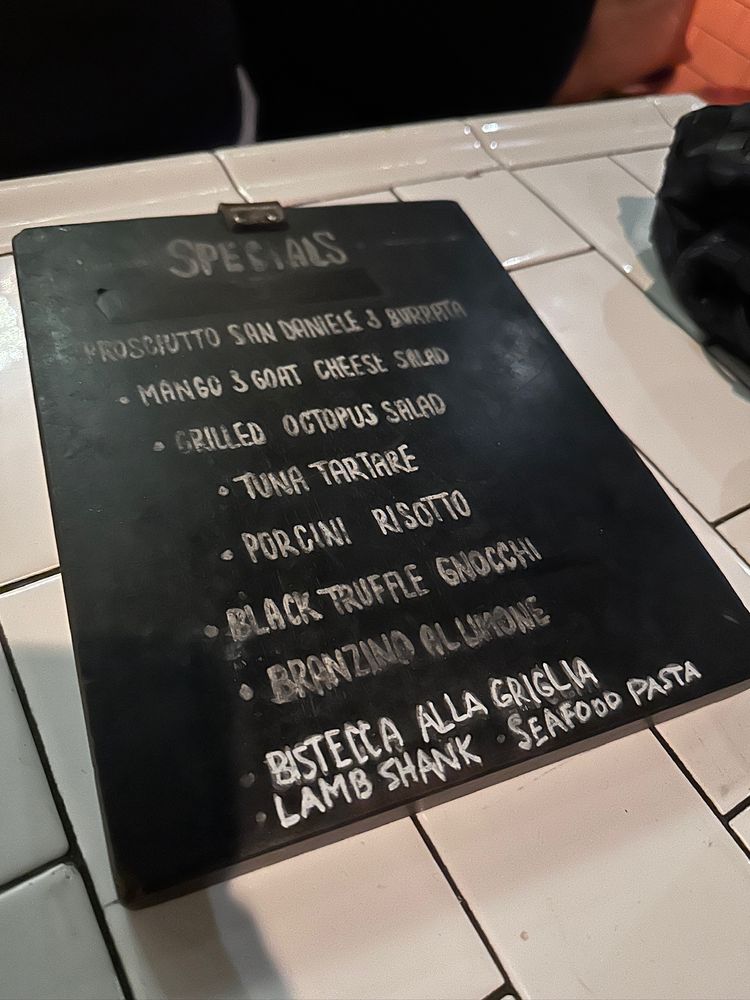 SPECIALS
PROSCIUTTO SAN DANIELE & BURRATA
• MANGO & GOAT CHEESE SALAD
• GRILLED OCTOPUS SALAD
• TUNA TARTARE
• PORCINI RISOTTO
• BLACK TRUFFLE GNOCCHI
• BRANZINO AL LIMONE
• BISTECCA ALLA GRIGLIA
• LAMB SHANK • SEAFOOD PASTA